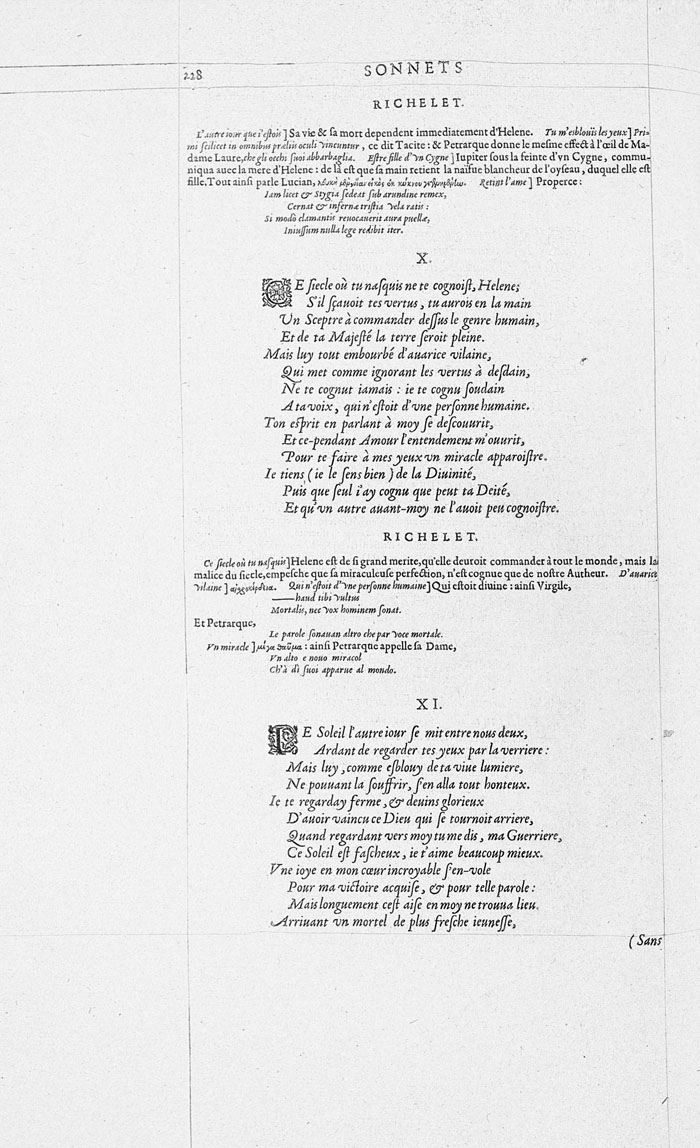 228
SONNETS
RICHELET.
L'autre iour que i'estois] Sa vie & sa mort dependent immediatement d'Helene. Tu m'esblouïs les yeux] Pri-
mi scilicet in omnibus præliis oculi vincuntur, ce dit Tacite: & Petrarque donne le mesme effect à l'œil de Ma-
dame Laure, che gli occhi suoi abbarbaglia. Estre fille d'vn Cygne] Iupiter sous la feinte d'vn Cygne, commu-
niqua auec la mere d'Helene: de là est que sa main retient la naïfue blancheur de l'oyseau, duquel elle est
fille. Tout ainsi parle Lucian, Retint l'ame] Properce:
Iam licet & Stygia sedeat sub arundine remex,
Cernat & infernæ tristia vela ratis:
Si modò clamantis reuocauerit aura puellæ,
Iniussum nulla lege redibit iter.
X.
CE siecle où tu nasquis ne te cognoist, Helene;
S'il sçauoit tes vertus, tu aurois en la main
Vn Sceptre à commander dessus le genre humain,
Et de ta Majesté la terre seroit pleine.
Mais luy tout embourbé d'auarice vilaine,
Qui met comme ignorant les vertus à desdain,
Ne te cognut iamais: ie te cognu soudain
A ta voix, qui n'estoit d'vne personne humaine.
Ton esprit en parlant à moy se descouurit,
Et ce-pendant Amour l'entendement m'ouurit,
Pour te faire à mes yeux vn miracle apparoistre.
Ie tiens (ie le sens bien) de la Diuinité,
Puis que seul i'ay cognu que peut ta Deïté,
Et qu'vn autre auant-moy ne l'auoit peu cognoistre.
RICHELET.
Ce siecle où tu nasquis] Helene est de si grand merite, qu'elle deuroit commander à tout le monde, mais la
malice du siecle, empesche que sa miraculeuse perfection, n'est cognue que de nostre Autheur. D'auarice
vilaine] αἰσχροκέρδεια. Qui n'estoit d'vne personne humaine] Qui estoit diuine: ainsi Virgile,
——haud tibi vultus
Mortalis, nec vox hominem sonat.
Et Petrarque,
Le parole sonauan altro che par voce mortale.
Vn miracle] μέγα θαῦμα: ainsi Petrarque appelle sa Dame,
Vn alto e nouo miracol
Ch'à dì suoi apparue al mondo.
XI.
LE Soleil l'autre iour se mit entre nous deux,
Ardant de regarder tes yeux par la verriere:
Mais luy, comme esblouy de ta viue lumiere,
Ne pouuant la souffrir, s'en alla tout honteux.
Ie te regarday ferme, & deuins glorieux
D'auoir vaincu ce Dieu qui se tournoit arriere,
Quand regardant vers moy tu me dis, ma Guerriere,
Ce Soleil est fascheux, ie t'aime beaucoup mieux.
Vne ioye en mon cœur incroyable s'en-vole
Pour ma victoire acquise, & pour telle parole:
Mais longuement cest aise en moy ne trouua lieu.
Arriuant vn mortel de plus fresche ieunesse,
(Sans